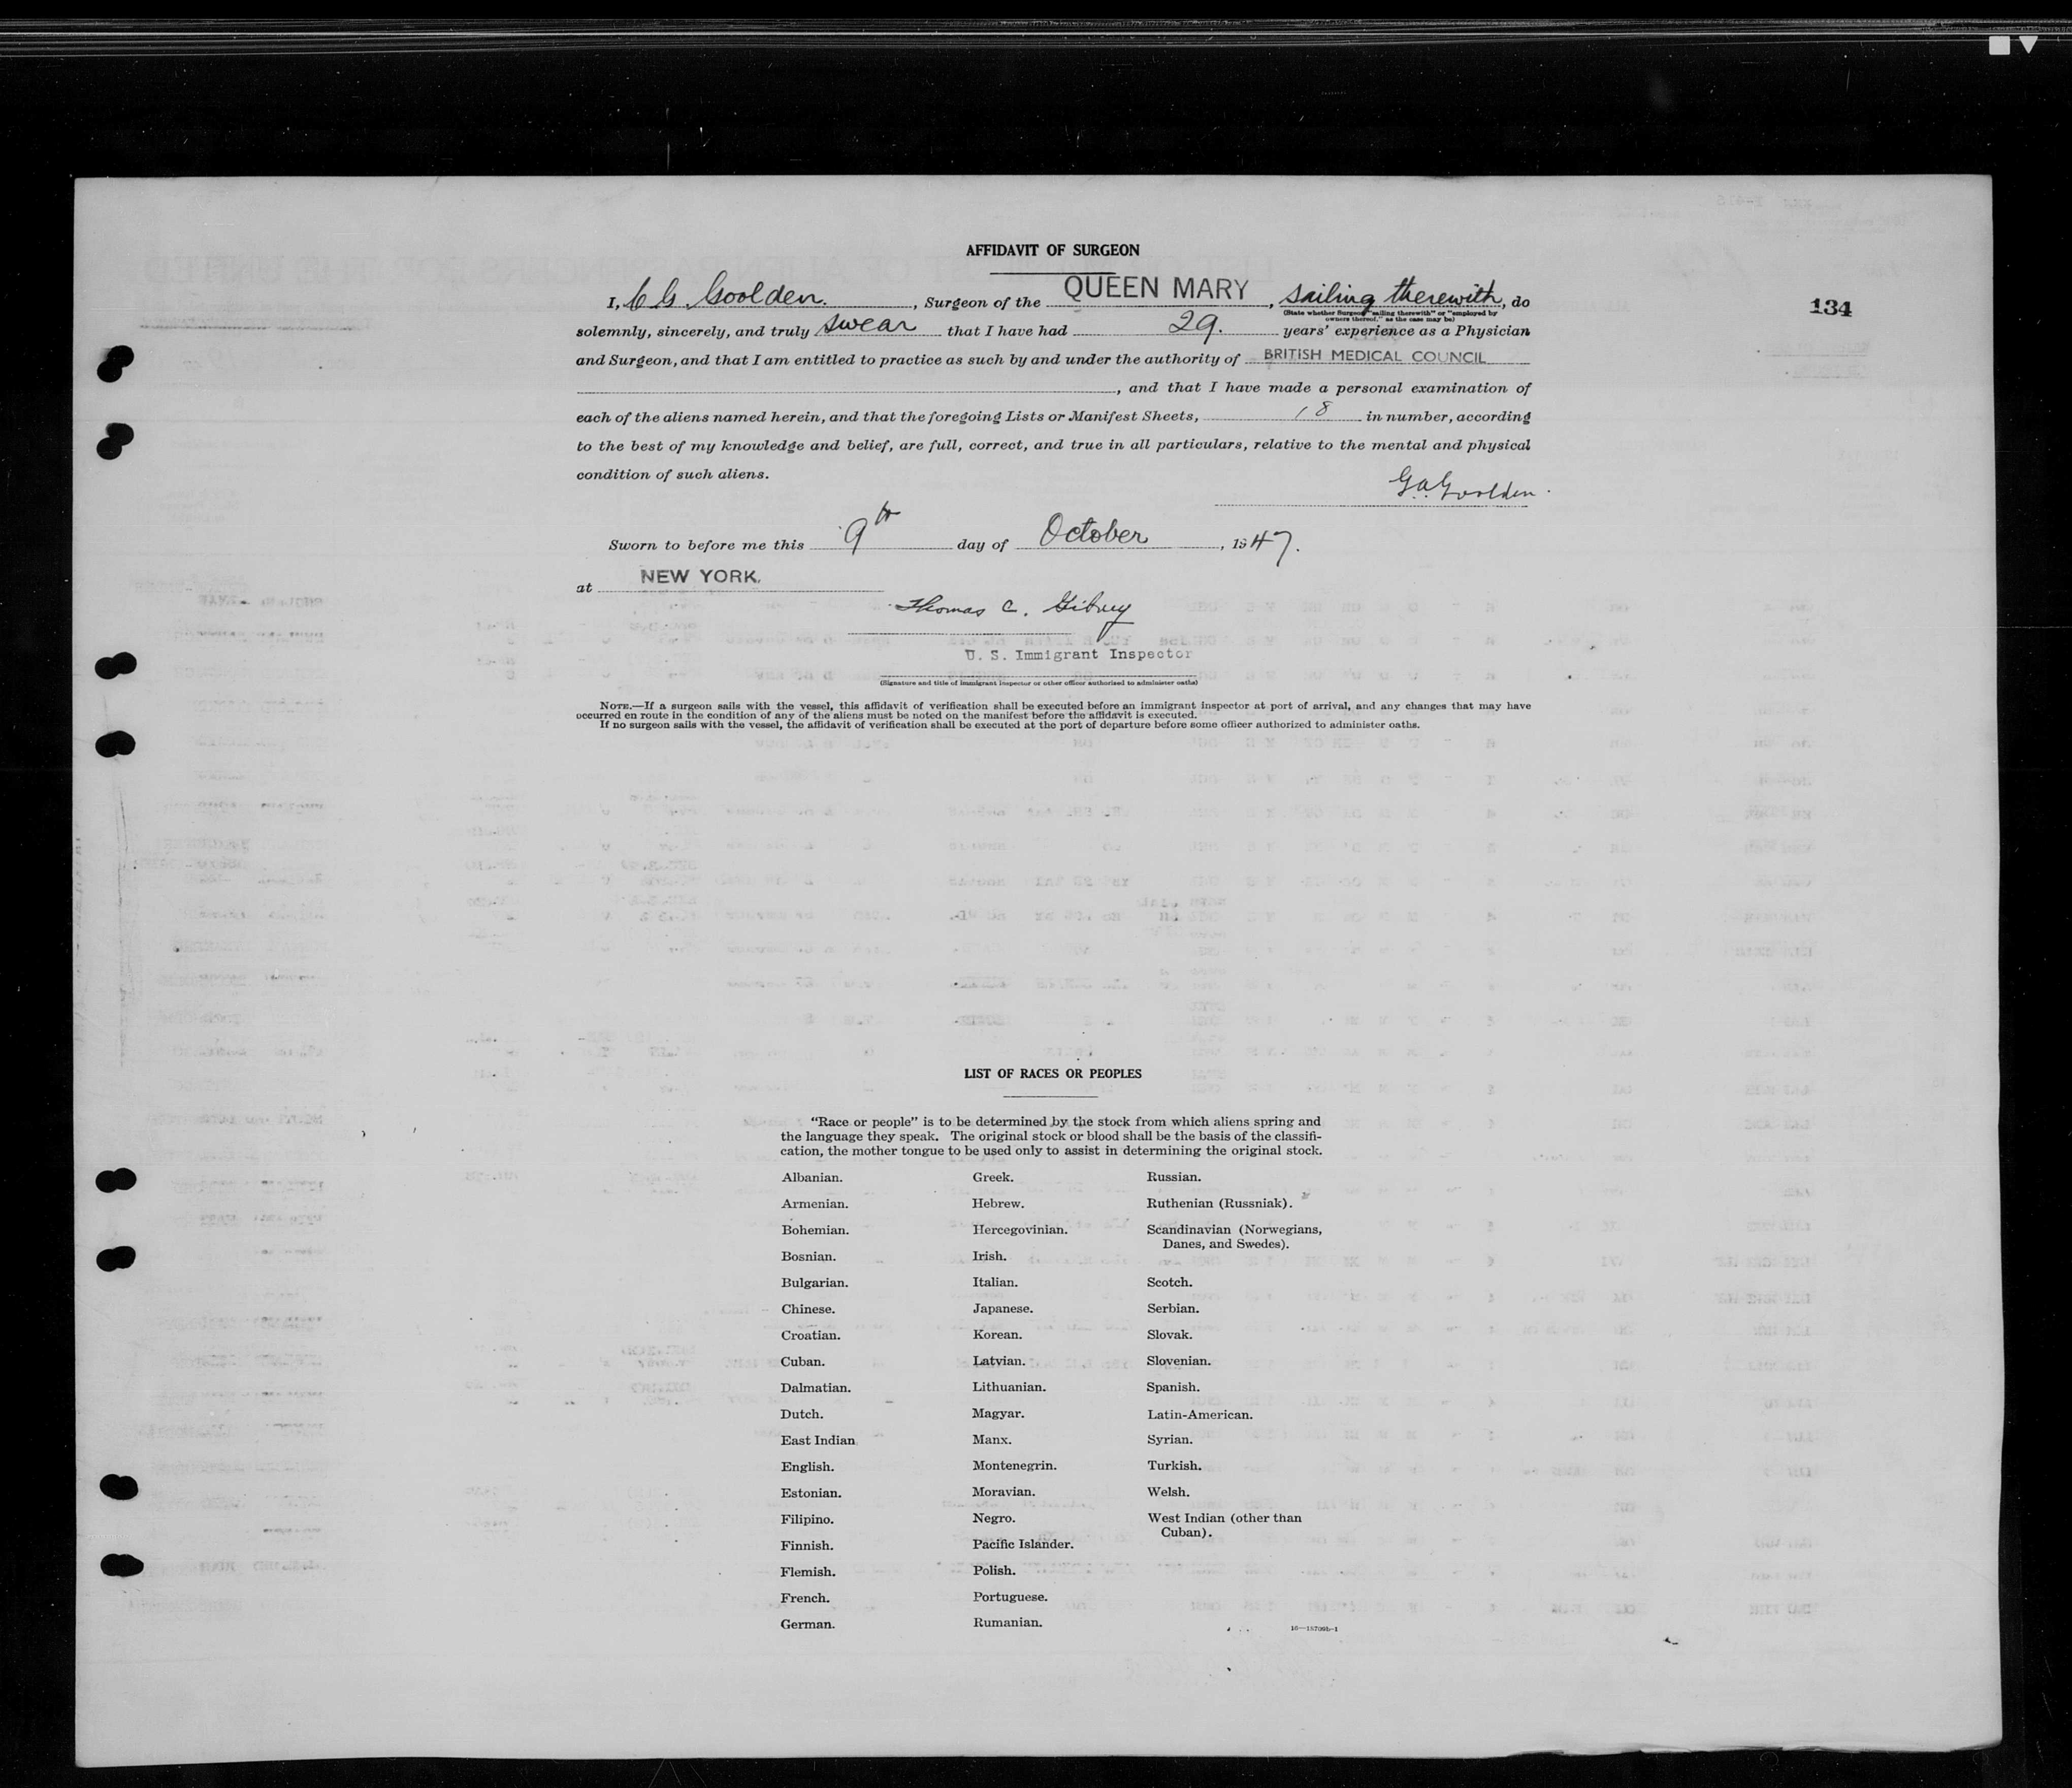 AFFIDAVIT OF SURGEON
I, C G Goolden., Surgeon of the QUEEN MARY, sailing therewith, do
134
(State whether Surgeon "sailing therewith" or "employed by
owners thereof," as the case may be)
solemnly, sincerely, and truly swear that I have had 29. years' experience as a Physician
and Surgeon, and that I am entitled to practice as such by and under the authority of BRITISH MEDICAL COUNCIL
, and that I have made a personal examination of
each of the aliens named herein, and that the foregoing Lists or Manifest Sheets, 18 in number, according
to the best of my knowledge and belief, are full, correct, and true in all particulars, relative to the mental and physical
condition of such aliens.
Goolden.
Sworn to before me this 9th day of October, 1947.
at NEW YORK.
Thomas C. Gibney
U. S. Immigrant Inspector
(Signature and title of immigrant inspector or other officer authorized to administer oaths)
NOTE.—If a surgeon sails with the vessel, this affidavit of verification shall be executed before an immigrant inspector at port of arrival, and any changes that may have
occurred en route in the condition of any of the aliens must be noted on the manifest before the affidavit is executed.
If no surgeon sails with the vessel, the affidavit of verification shall be executed at the port of departure before some officer authorized to administer oaths.
LIST OF RACES OR PEOPLES
"Race or people" is to be determined by the stock from which aliens spring and
the language they speak. The original stock or blood shall be the basis of the classifi-
cation, the mother tongue to be used only to assist in determining the original stock.
Albanian.
Armenian.
Bohemian.
Bosnian.
Bulgarian.
Chinese.
Croatian.
Cuban.
Dalmatian.
Dutch.
East Indian
English.
Estonian.
Filipino.
Finnish.
Flemish.
French.
German.
Greek.
Hebrew.
Hercegovinian.
Irish.
Italian.
Japanese.
Korean.
Latvian.
Lithuanian.
Magyar.
Manx.
Montenegrin.
Moravian.
Negro.
Pacific Islander.
Polish.
Portuguese.
Rumanian.
Russian.
Ruthenian (Russniak).
Scandinavian (Norwegians,
Danes, and Swedes).
Scotch.
Serbian.
Slovak.
Slovenian.
Spanish.
Latin-American.
Syrian.
Turkish.
Welsh.
West Indian (other than
Cuban).